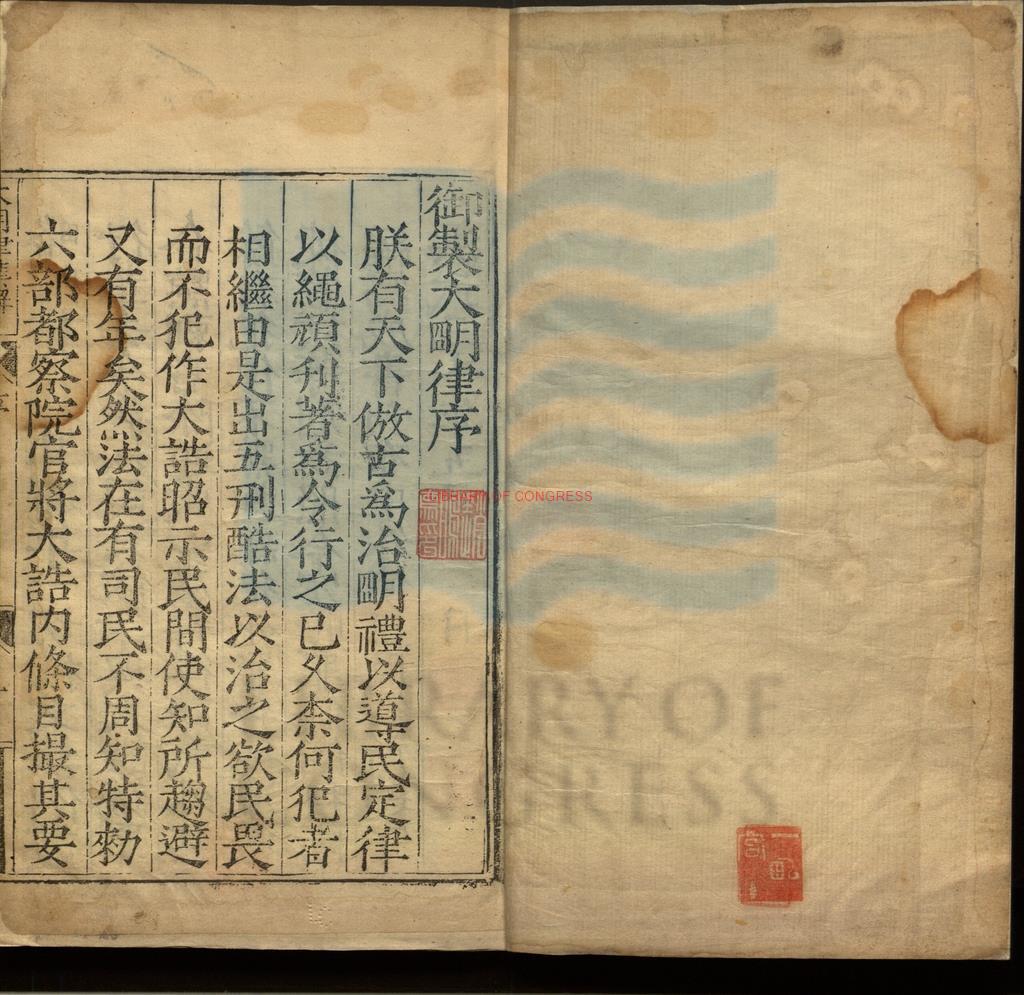 御製大明律序
朕有天下倣古爲治明禮以導民定律
以繩頑刋著爲令行之已久柰何犯者
相繼由是出五刑酷法以治之欲民畏
而不犯作大誥昭示民間使知所趨避
又有年矣然法在有司民不周知特勑
六部都察院官將大誥内條目撮其要
LIBRARY OF CONGRESS